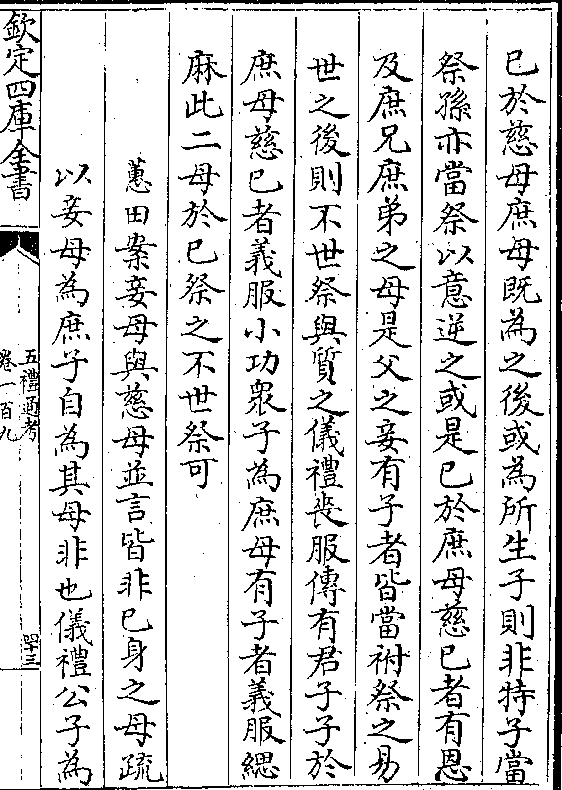 已於慈母庶母既為之後或為所生子則非特子當
祭孫亦當祭以意逆之或是已於庶母慈已者有恩
及庶兄庶弟之母是父之妾有子者皆當祔祭之易
世之後則不世祭與質之儀禮喪服傳有君子子於
庶母慈已者義服小功衆子為庶母有子者義服緦
麻此二母於已祭之不世祭可
蕙田案妾母與慈母並言皆非已身之母疏
以妾母為庶子自為其母非也儀禮公子為
欽定四庫全書
五禮通考
卷一百九
四十三